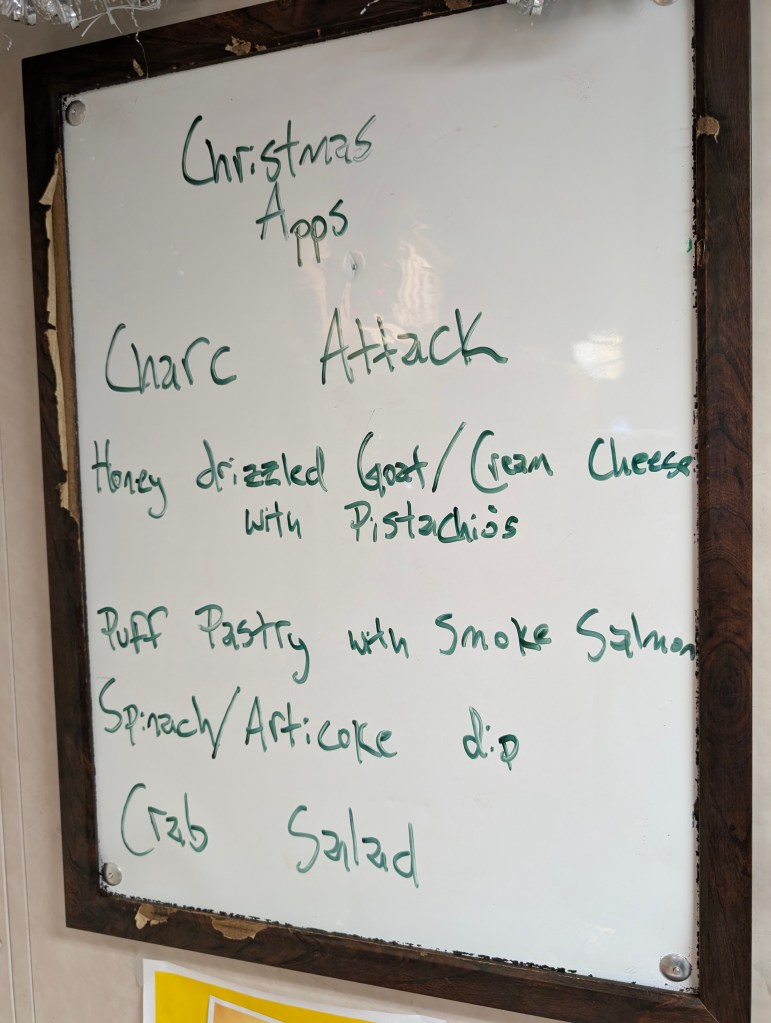 Christmas
Apps
Charc Attack
Honey drizzled Goat/Cream Cheese
with Pistachio's
Puff Pastry with Smoke Salmon
Spinach/Articoke dip
Crab Salad